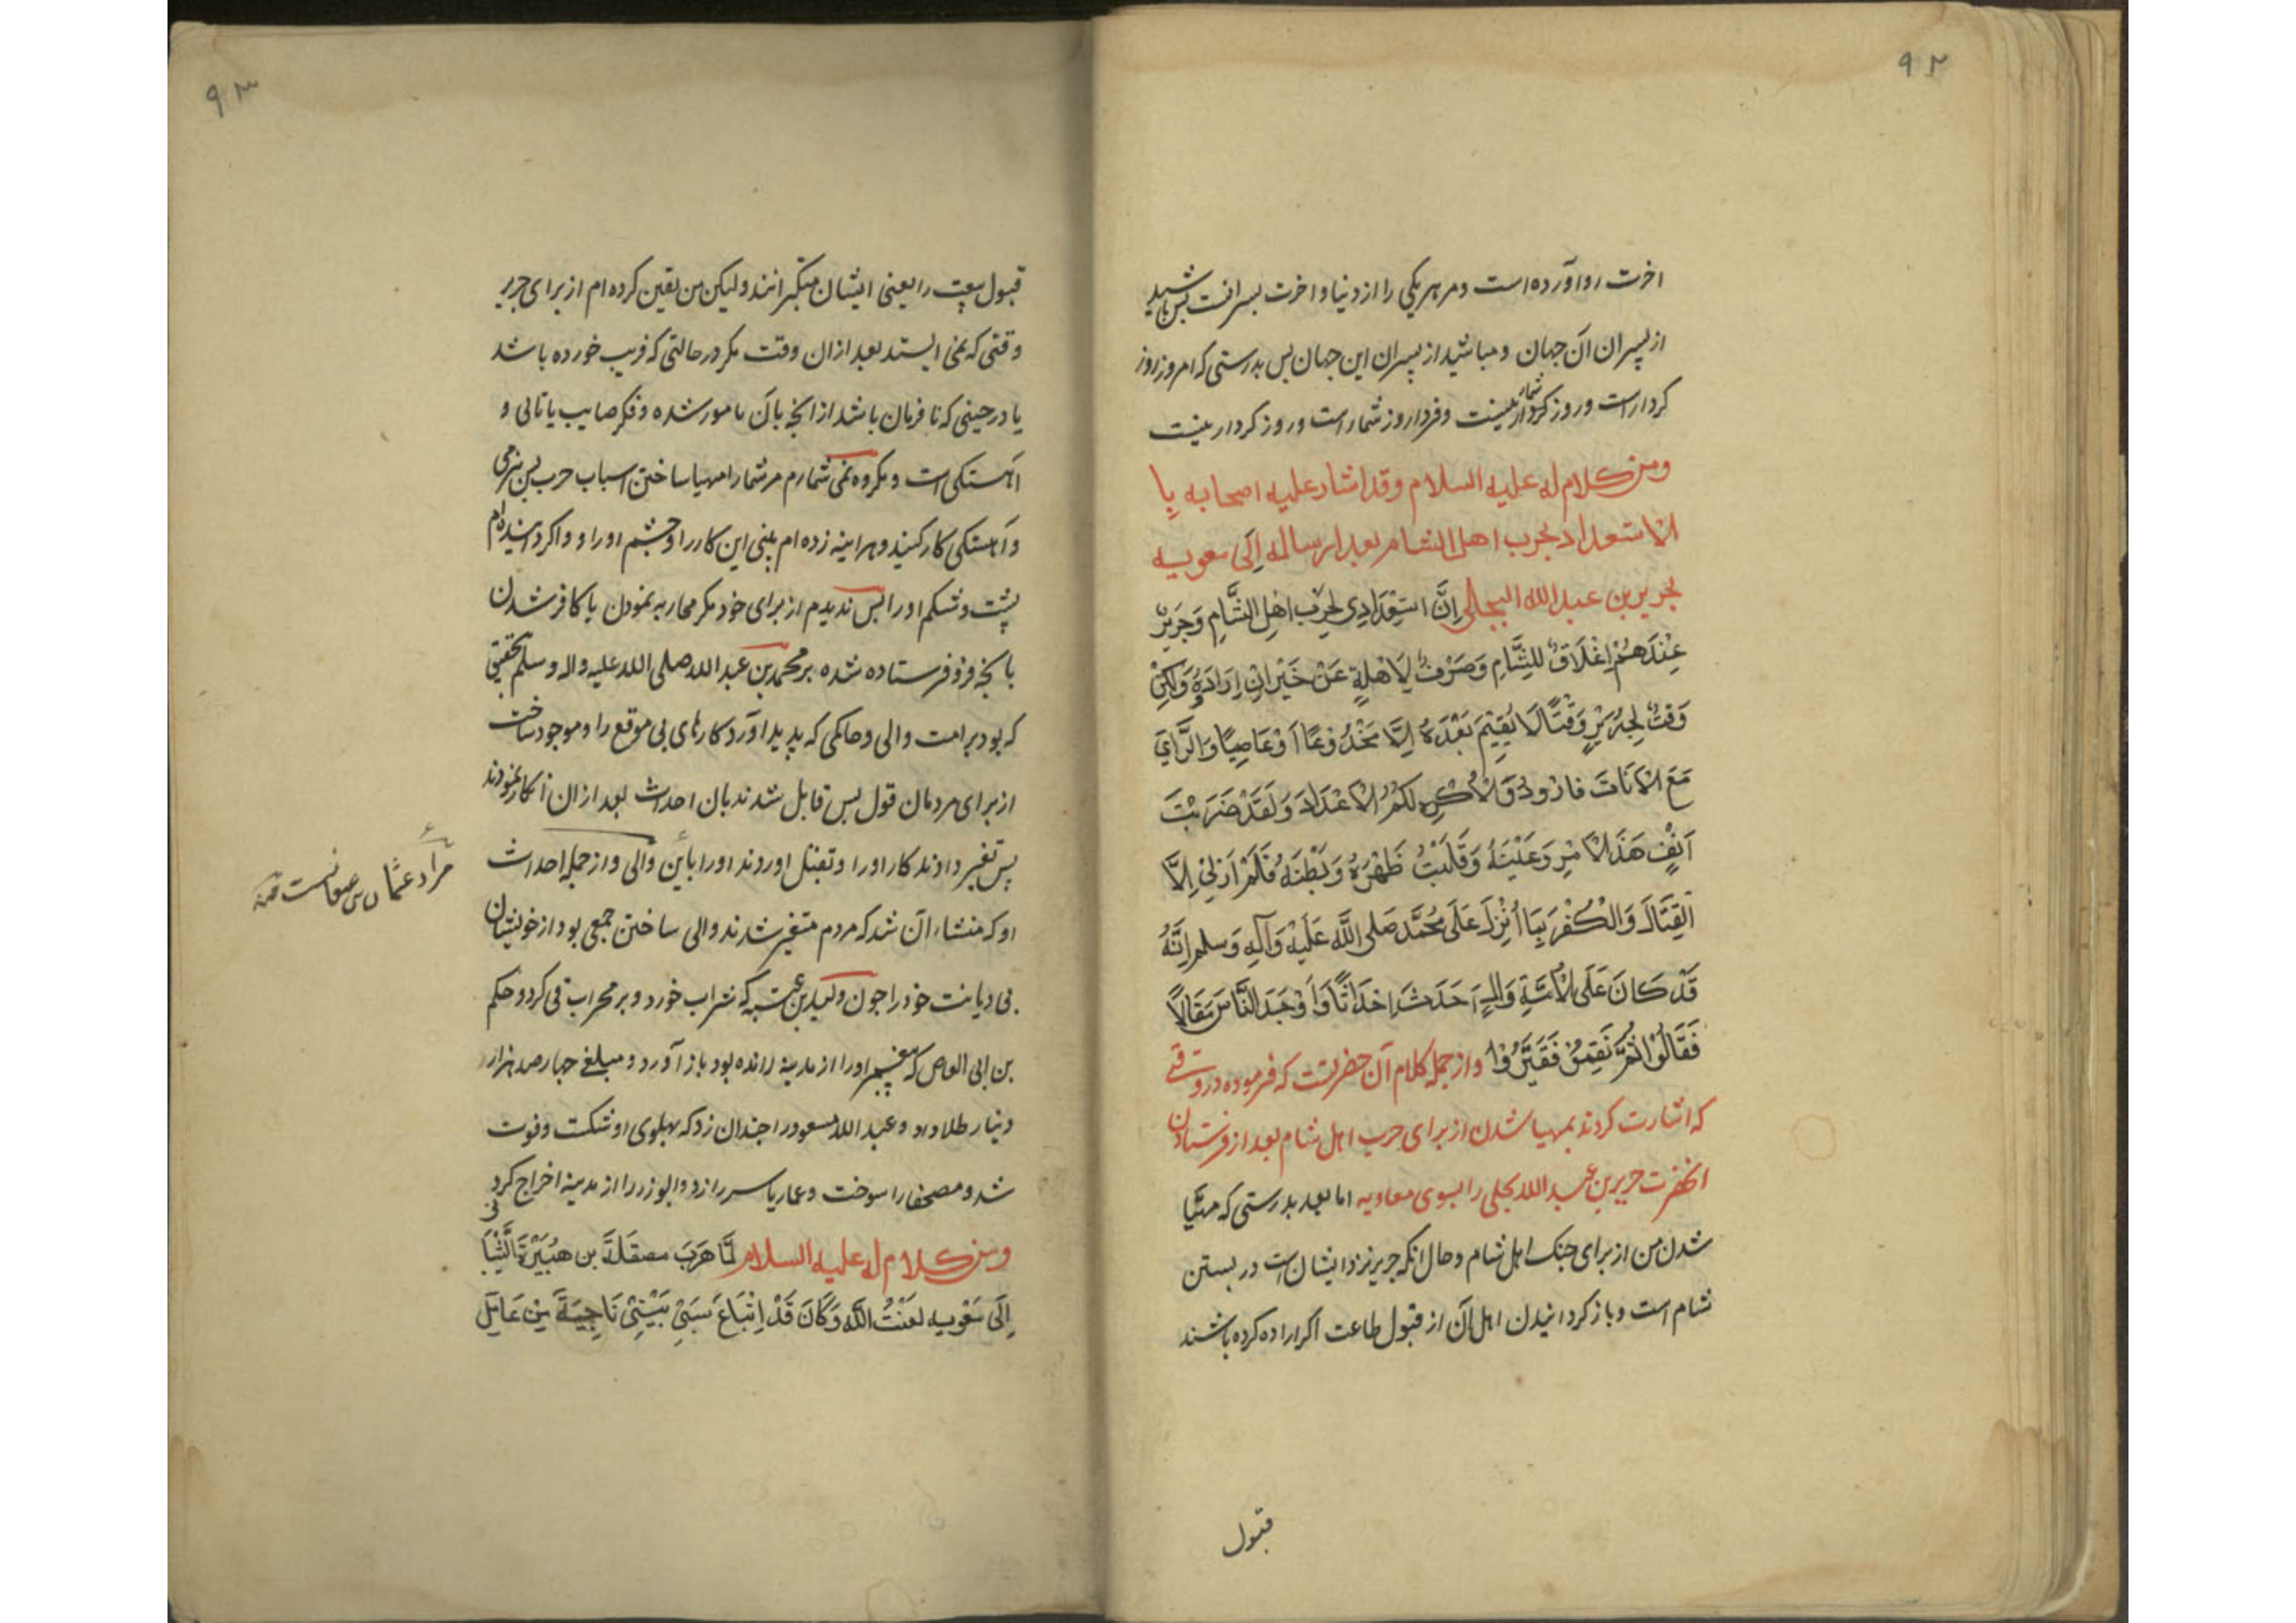 ۹۲
اخرت رواورده است و مر هر یکی را از دنیا و اخرت بسرانست بس باشید
از پسران آن جهان و مباشید از پسران این جهان بس بدرستی که امروز روز
کردار است و روز شمار نیست و فردا روز شمار است و روز کردار نیست
ومن كلام له عليه السلام وقد اشار عليه اصحابه با
الاستعداد لحرب اهل الشام بعد ارساله الى معويه
لجرير بن عبد الله البجالي اِنَّ اسْتِعْدَادِي لِحَرْبِ اهْلِ الشَّامِ وَجَرِيرٌ
عِنْدَهُمْ اِغْلَاقٌ لِلشَّامِ وَصَرْفٌ لِاَهْلِهِ عَنْ خَيْرٍ اِنْ اِرَادُوهُ وَلٰكِنْ
وَقَتُّ لِجَرِيرٍ وَقْتًا لَا يُقِيْمُ بَعْدَهُ اِلَّا مَخْدُوْعًا اَوْ عَاصِيًا وَالرَّايُ
مَعَ الْاَنَاتِ فارْوِدُوْ وَلَا اُكْرِهُ لَكُمُ الْاِعْدَادَ وَلَقَدْ ضَرَبْتُ
اَنْفَ هَذَا الْاَمْرِ وَعَيْنَهُ وَقَلَبْتُ ظَهْرَهُ وَبَطْنَهُ فَلَمْ اَرَ لِيْ اِلَّا
اَلْقِتَالَ وَالْكُفْرَ بِمَا اُنْزِلَ عَلَى مُحَمَّدٍ صَلى اللَّهُ عَلَيْهِ وَآلِهِ وَسلم اِنَّهُ
قَدْ كَانَ عَلَى الْاُمَّةِ وَالٍ اَحْدَثَ اِحْدَاثًا وَاَوْجَدَ النَّاسَ مَقَالًا
فَقَالُوْا ثُمَّ نَقِمُوْا فَغَيَّرُوْا واز جمله کلام آن حضرتست که فرموده در وقتی
که اشارت کردند بمهیا شدن از برای حرب اهل شام بعد از فرستادن
انحضرت جریر بن عبد الله بجلی را بسوی معاویه اما بعد بدرستی که مهیّا
شدن من از برای جنک اهل شام و حال انکه جریر نزد ایشان است در بستن
شام است و باز کردانیدن اهل آن از قبول طاعت اکر اراده کرده باشند
قبول
۹۳
قبول بیعت را یعنی ایشان متکبرانند ولیکن من تعین کرده ام از برای جریر
وقتی که نمی ایستد بعد از ان وقت مکر در حالتی که فریب خورده باشد
یا در حینی که نافرمان باشد از انچه بآن مامور شده و فکر صایب با تانی و
اهستکی است و مکروه نمی شمارم مر شما را مهیا ساختن اسباب حرب بس بنرمی
و آهستکی کار کنید و هراینه زده ام بینی این کار را و چشم او را و واکردانیده ام
پشت و شکم او را بس ندیدم از برای خود مکر محاربه نمودن یا کافر شدن
بانچه فرو فرستاده شده بر محمد بن عبد الله صلی الله علیه واله وسلم بتحقیق
که بود بر امت والی و حاکمی که پدید اورد کارهای بی موقع را و موجود ساخت
از برای مردمان قول بس قایل شدند بان احداث بعد از ان انکار نمودند
پس تغیر دادند کار او را و بقتل اوردند او را باین والی و از جمله احداث
او که منشاء آن شد که مردم متغیر شدند والی ساختن جمعی بود از خویشان
بی دیانت خود را جون ولید بن عتبه که شراب خورد و بر محراب قی کرد و حکم
بن ابی العاص که پیغمبر او را از مدینه رانده بود باز آورد و مبلغ جهار صد هزار
دینار طلا داد و عبد الله مسعود را جندان زد که پهلوی او شکست و فوت
شد و مصحفها را سوخت و عمار یاسر را زد و ابوذر را از مدینه اخراج کرد
ومن كلام له عليه السلام لَمَّا هَرَبَ مصقلة بن هُبَيْرَةَ الشَّيْبَانِي
اِلَى مَعْويه لَعَنَتُ اللّٰه وَكَانَ قَدْ اِبْتَاعَ سَبْيَ بَنِيْ نَاجِيَةَ مِنْ عَامِلِ
مراد عثمان بن عفانست